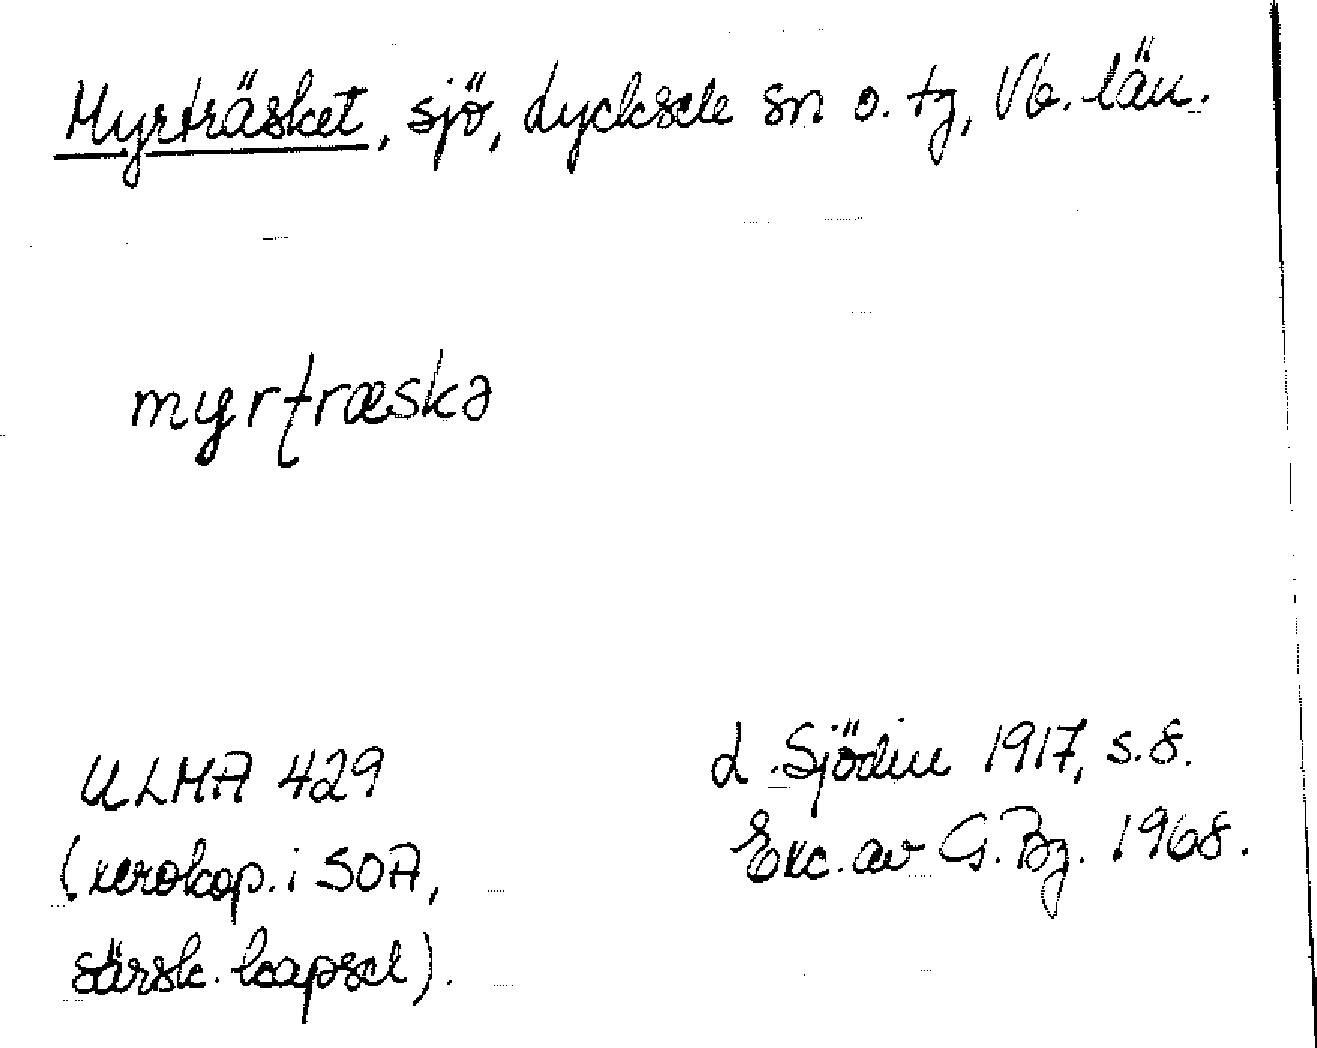 Myrträsket, sjö, Lycksele sn o. tg, Vb. län.
myrʈræskə
ULMA 429
(xerokop. i SOA,
särsk. kapsel).
L. Sjödin 1917, s. 8.
Exc. av G. Bg. 1968.